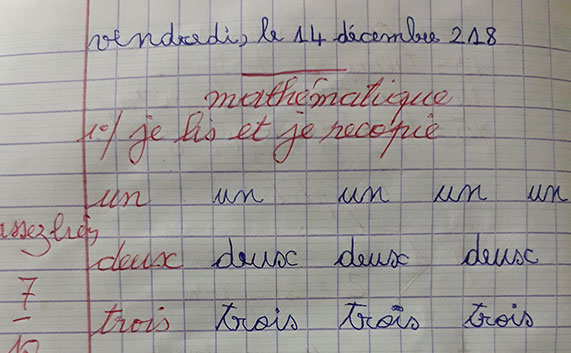 vendredi, le 14 décembre 218
mathématique
1°/ je lis et je recopie
un un un un un
assez bien
deux deux deux deux
7
10
trois trois trois trois